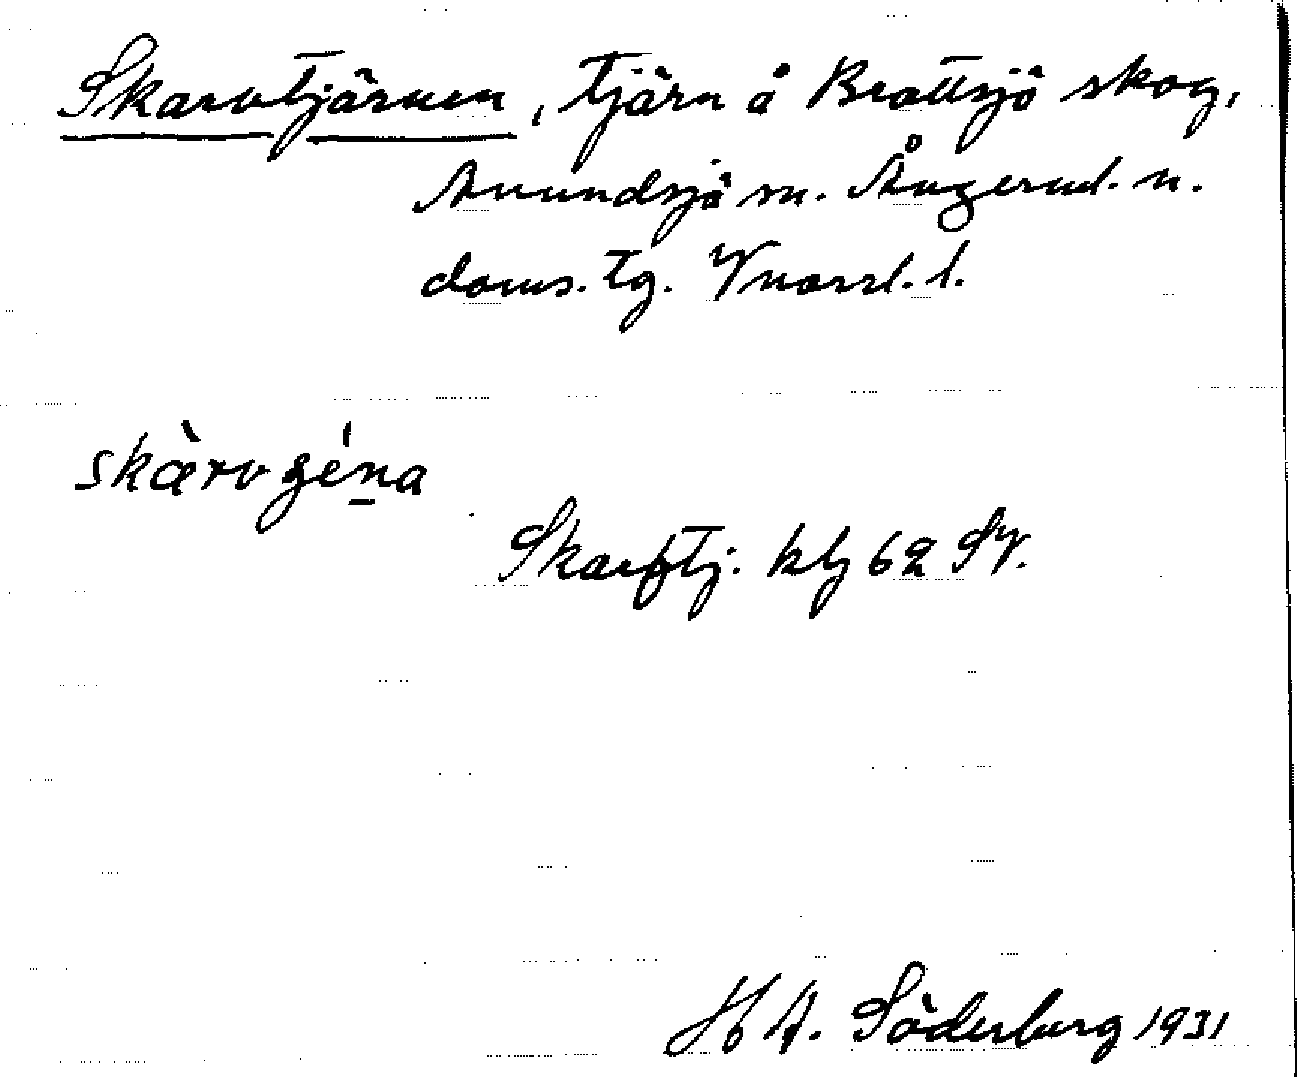 Skarvtjärnen, tjärn å Brattsjö skog,
Anundsjö sn. Ångerml. n.
doms. tg. Vnorrl. l.
skàrvgéna
Skarftj. kbj 62 SV.
H A. Söderberg 1931